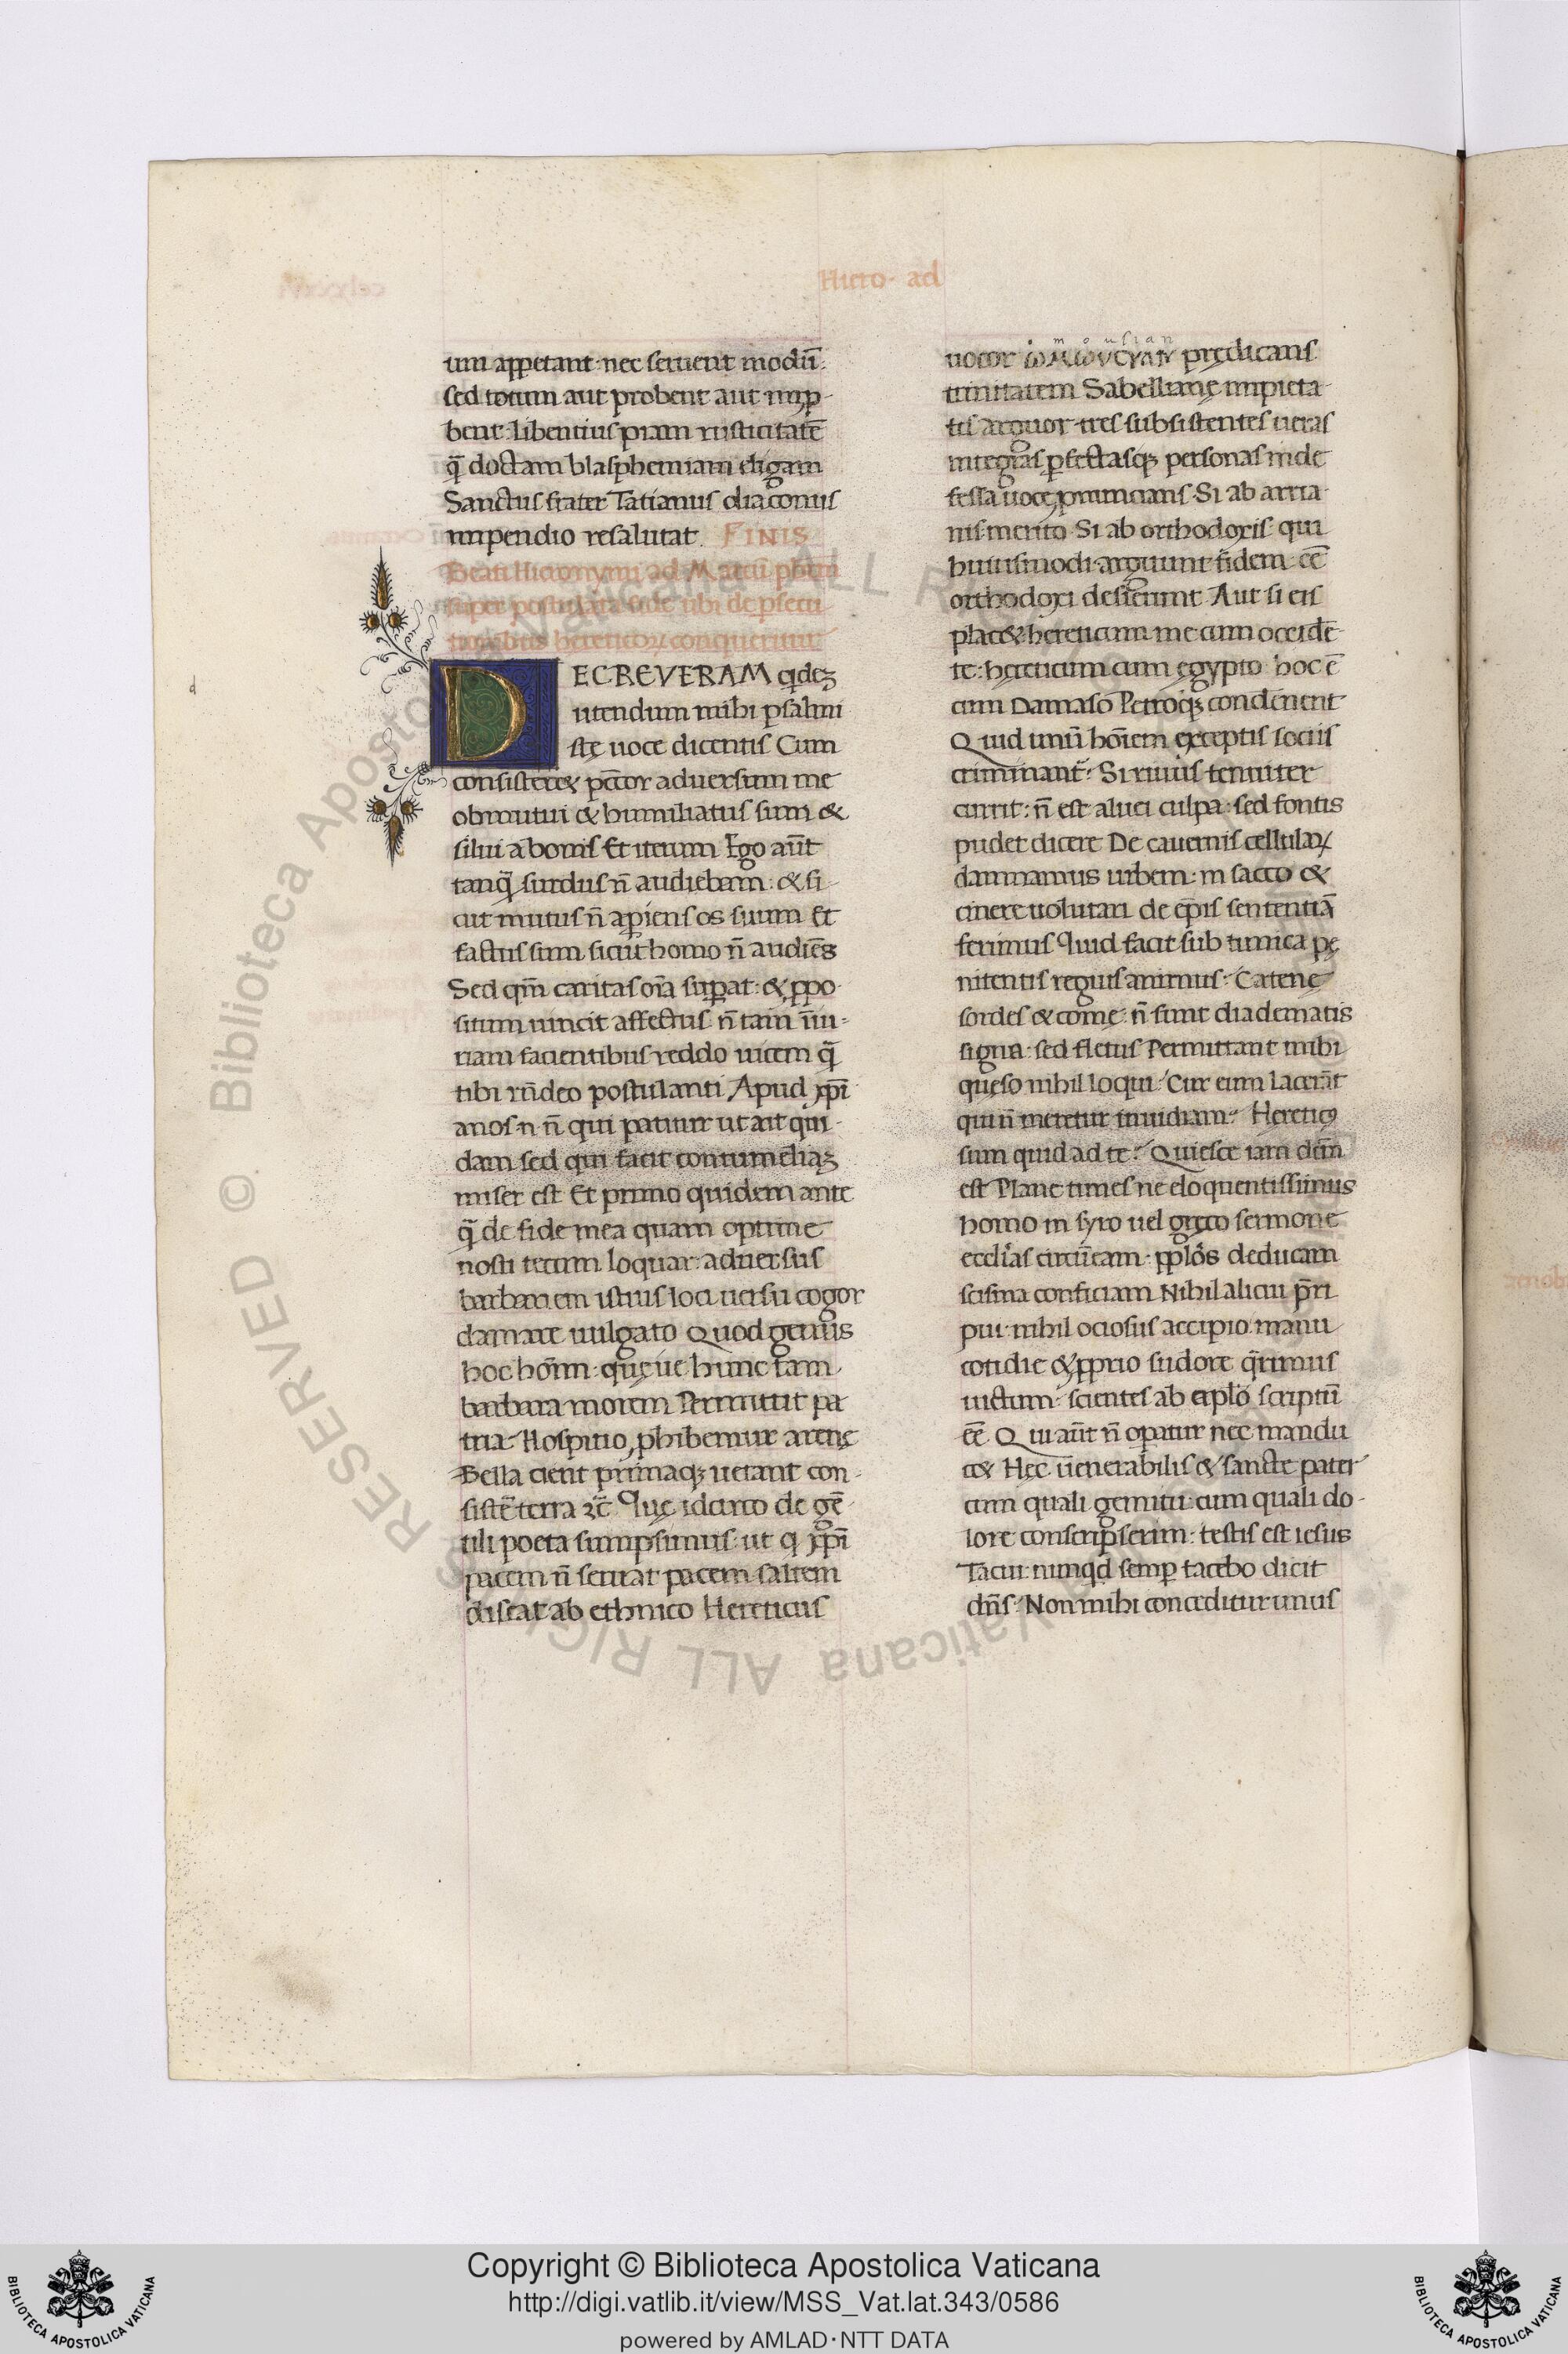 Hiero· ad
um appetant· nec seruent modū:
sed totum aut probent aut imp̄-
bent· libentius piam rusticitatē
q̄ doctam blasphemiam eligam
Sanctus frater Tatianus diaconus
impendio resalutat. FINIS
Beati Hieronymi ad Marcū pbrm
super postulata fide ubi de psecu
tionibus hereticoꝝ conqueritur
DECREVERAM qideꝫ
utendum mihi psalmi
stę uoce dicentis Cum
consisteret pctor aduersum me
obmutui & humiliatus sum &
silui a bonis Et iterum Ego aūt
tanq̄ surdus n̄ audiebam: & si-
cut mutus n̄ apiens os suum Et
factus sum sicut homo n̄ audiēs
Sed qm̄ caritas oīa supat: & ppo-
situm uincit affectus· n̄ tam iniu-
riam facientibus reddo uicem q̄
tibi rn̄deo postulanti Apud xp̄i
anos n̄ n̄ qui patitur ut ait qui-
dam sed qui facit contumeliaꝫ
miser est Et primo quidem ante
q̄ de fide mea quam optime
nosti tecum loquar· aduersus
barbariem istius loci uersu cogor
clamare uulgato Quod genus
hoc hoīm· quęue hunc tam
barbara morem Permittit pa
tria· Hospitio phibemur arenę
Bella cient primaqꝫ uetant con-
sistē terra ⁊c̄ Quę idcirco de gē-
tili poeta sumpsimus· ut q xp̄i
pacem n̄ seruat pacem saltem
discat· ab ethnico Hereticus
mousian
uocor ὠμωουсγαν prędicans
trinitatem Sabellianę impieta-
tis arguor tres subsistentes ueras
integras pfectasqꝫ personas inde
fessa uoce pnuncians· Si ab arria-
nis merito· Si ab orthodoxis qui
huiusmodi arguunt fidem· eē
orthodoxi desierunt Aut si eis
placet hereticum me cum occidē-
te: hęreticum cum ęgypto hoc ē
cum Damaso Petroqꝫ condēnent
Quid unū hoīem exceptis sociis
criminant̄· Si riuus tenuiter
currit: n̄ est aluei culpa· sed fontis
pudet dicere De cauernis cellulaꝝ
damnamus urbem· in sacco &
cinere uolutari de epis sententiā
ferimus Quid facit sub tunica pę
nitentis regius animus· Catenę
sordes & comę: n̄ sunt diadematis
signa· sed fletus Permittant mihi
quęso nihil loqui· Cur eum lacerāt
qui n̄ meretur inuidiam· Heretic9
sum quid ad te· Quiesce iam dc̄m
est Plane times ne eloquentissimus
homo in syro uel gręco sermone
ecclīas circūeam· pplos deducam
scisma conficiam Nihil alicui p̄ri
pui· nihil ociosus accipio· manu
cotidie & pprio sudore q̄rimus
uictum· scientes ab aplo scriptū
eē Qui aūt n̄ opatur nec mandu
cet Hęc uenerabilis & sancte pater
cum quali gemitu· cum quali do-
lore conscripserim· testis est iesus
Tacui· nunqd semp tacebo dicit
dn̄s· Non mihi conceditur unus
d
© Biblioteca Apostolica Vaticana ALL RIGHTS RESERVED
Copyright © Biblioteca Apostolica Vaticana
http://digi.vatlib.it/view/MSS_Vat.lat.343/0586
powered by AMLAD·NTT DATA
BIBLIOTECA APOSTOLICA VATICANA
BIBLIOTECA APOSTOLICA VATICANA